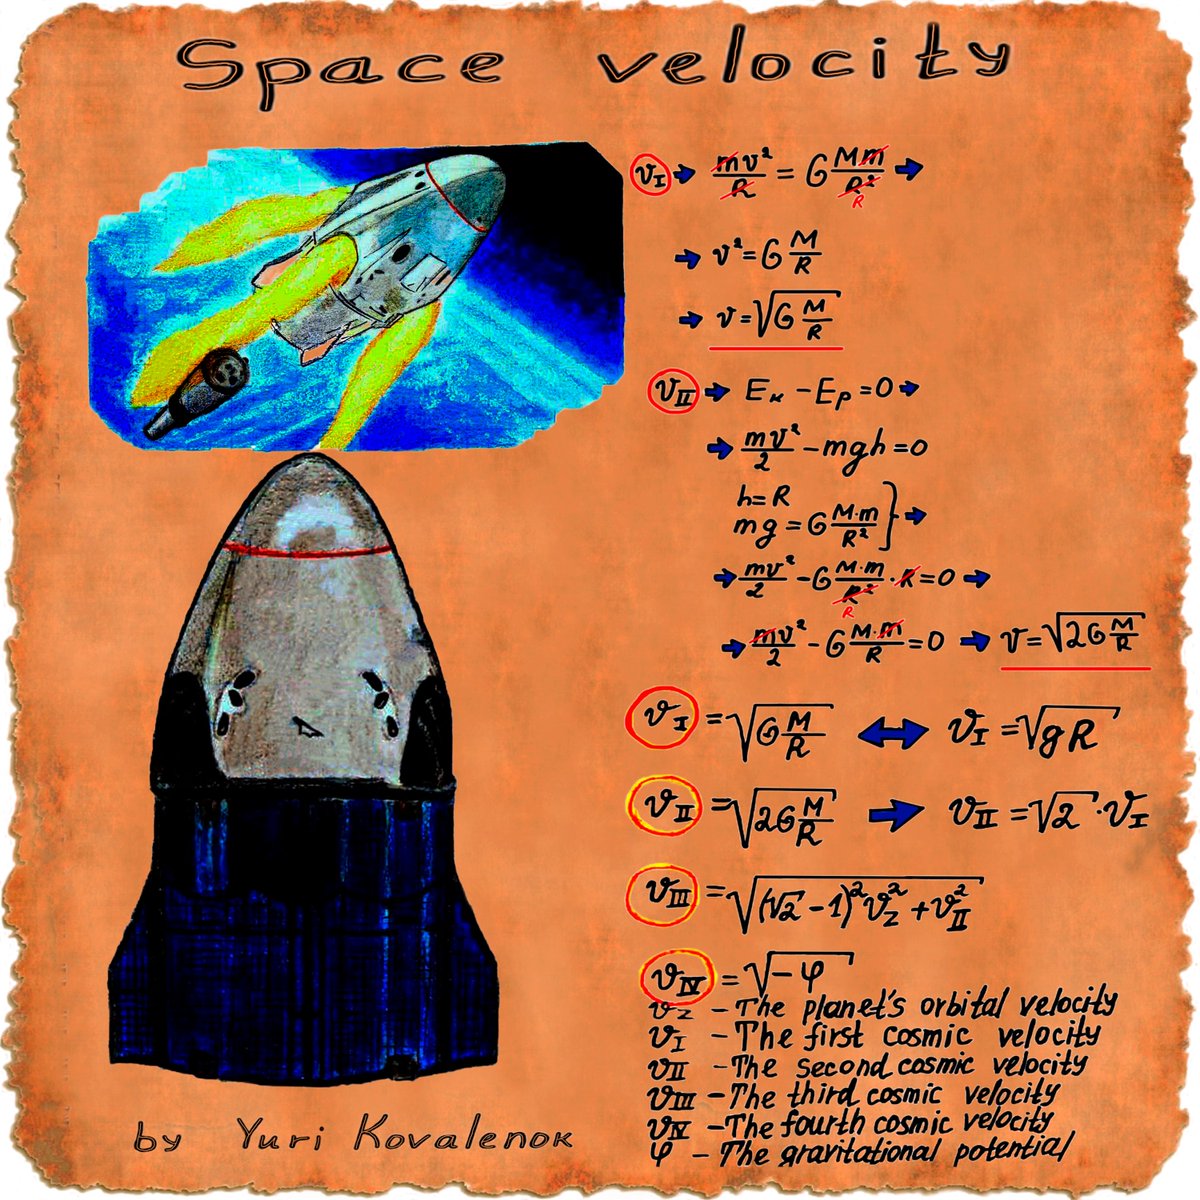 Space velocity
v_I → mv²/R = G Mm/R² → R
→ v² = G M/R
→ v = √(G M/R)
v_II → Eк − Ep = 0 →
→ mv²/2 − mgh = 0
h = R
mg = G M·m/R² } →
→ mv²/2 − G M·m/R² · R = 0 → R
→ mv²/2 − G M·m/R = 0 → v = √(2G M/R)
v_I = √(G M/R) ↔ v_I = √(gR)
v_II = √(2G M/R) → v_II = √2 · v_I
v_III = √((√2 − 1)² v_z² + v_II²)
v_IV = √(−φ)
v_z – The planet's orbital velocity
v_I – The first cosmic velocity
v_II – The second cosmic velocity
v_III – The third cosmic velocity
v_IV – The fourth cosmic velocity
φ – The gravitational potential
by Yuri Kovalenok